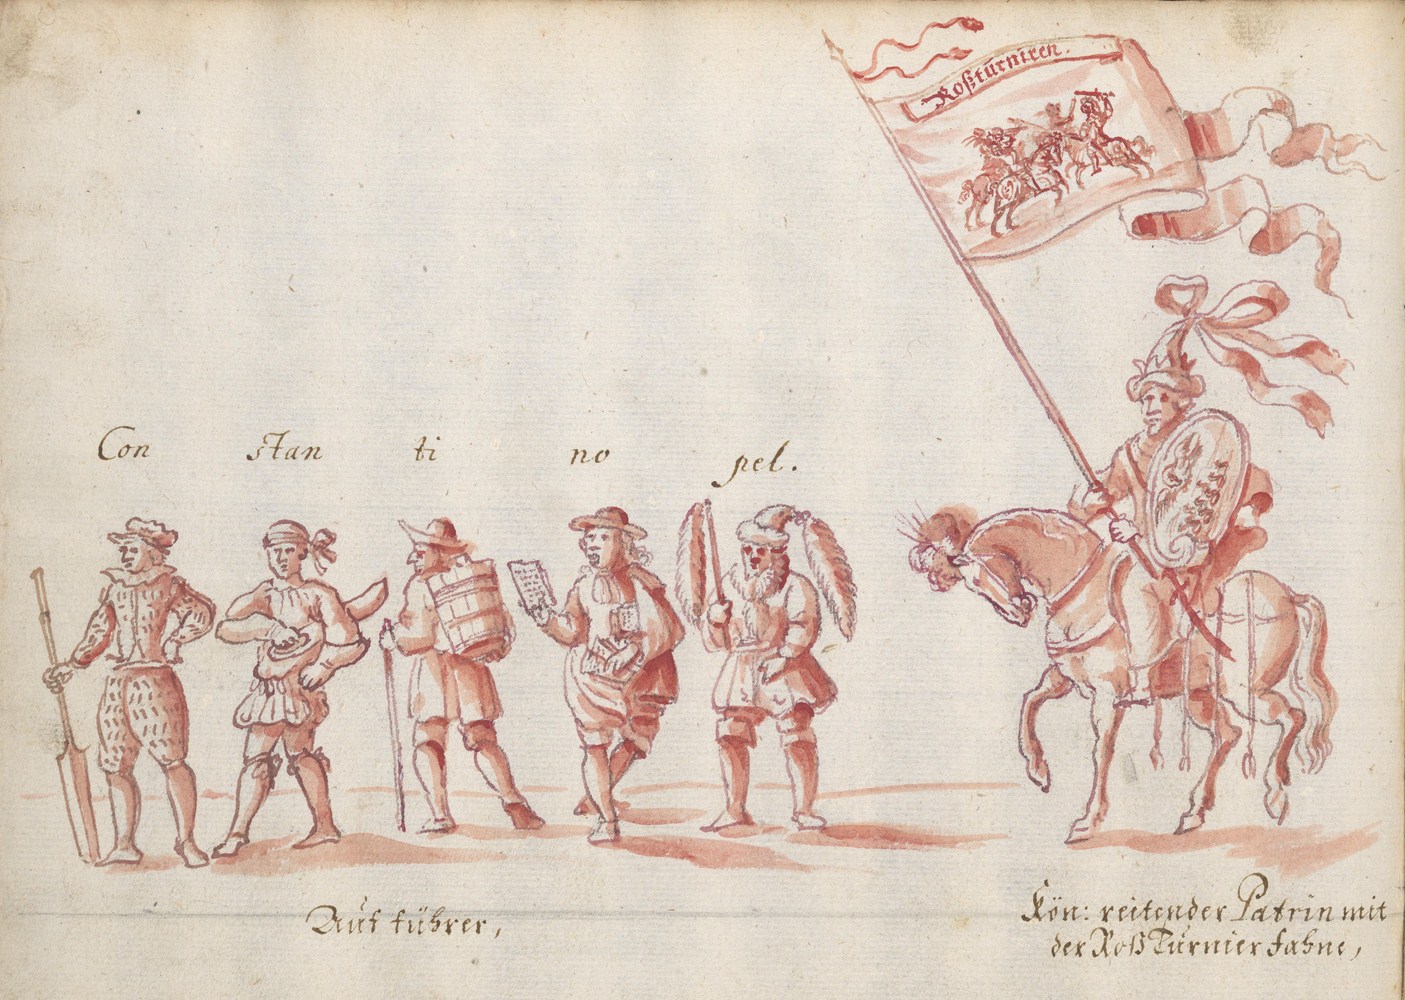 Roßturniren.
Con stan ti no pel.
Auf führer,
Kön: reitender Patrin mit
der Roß Turnier fahne,